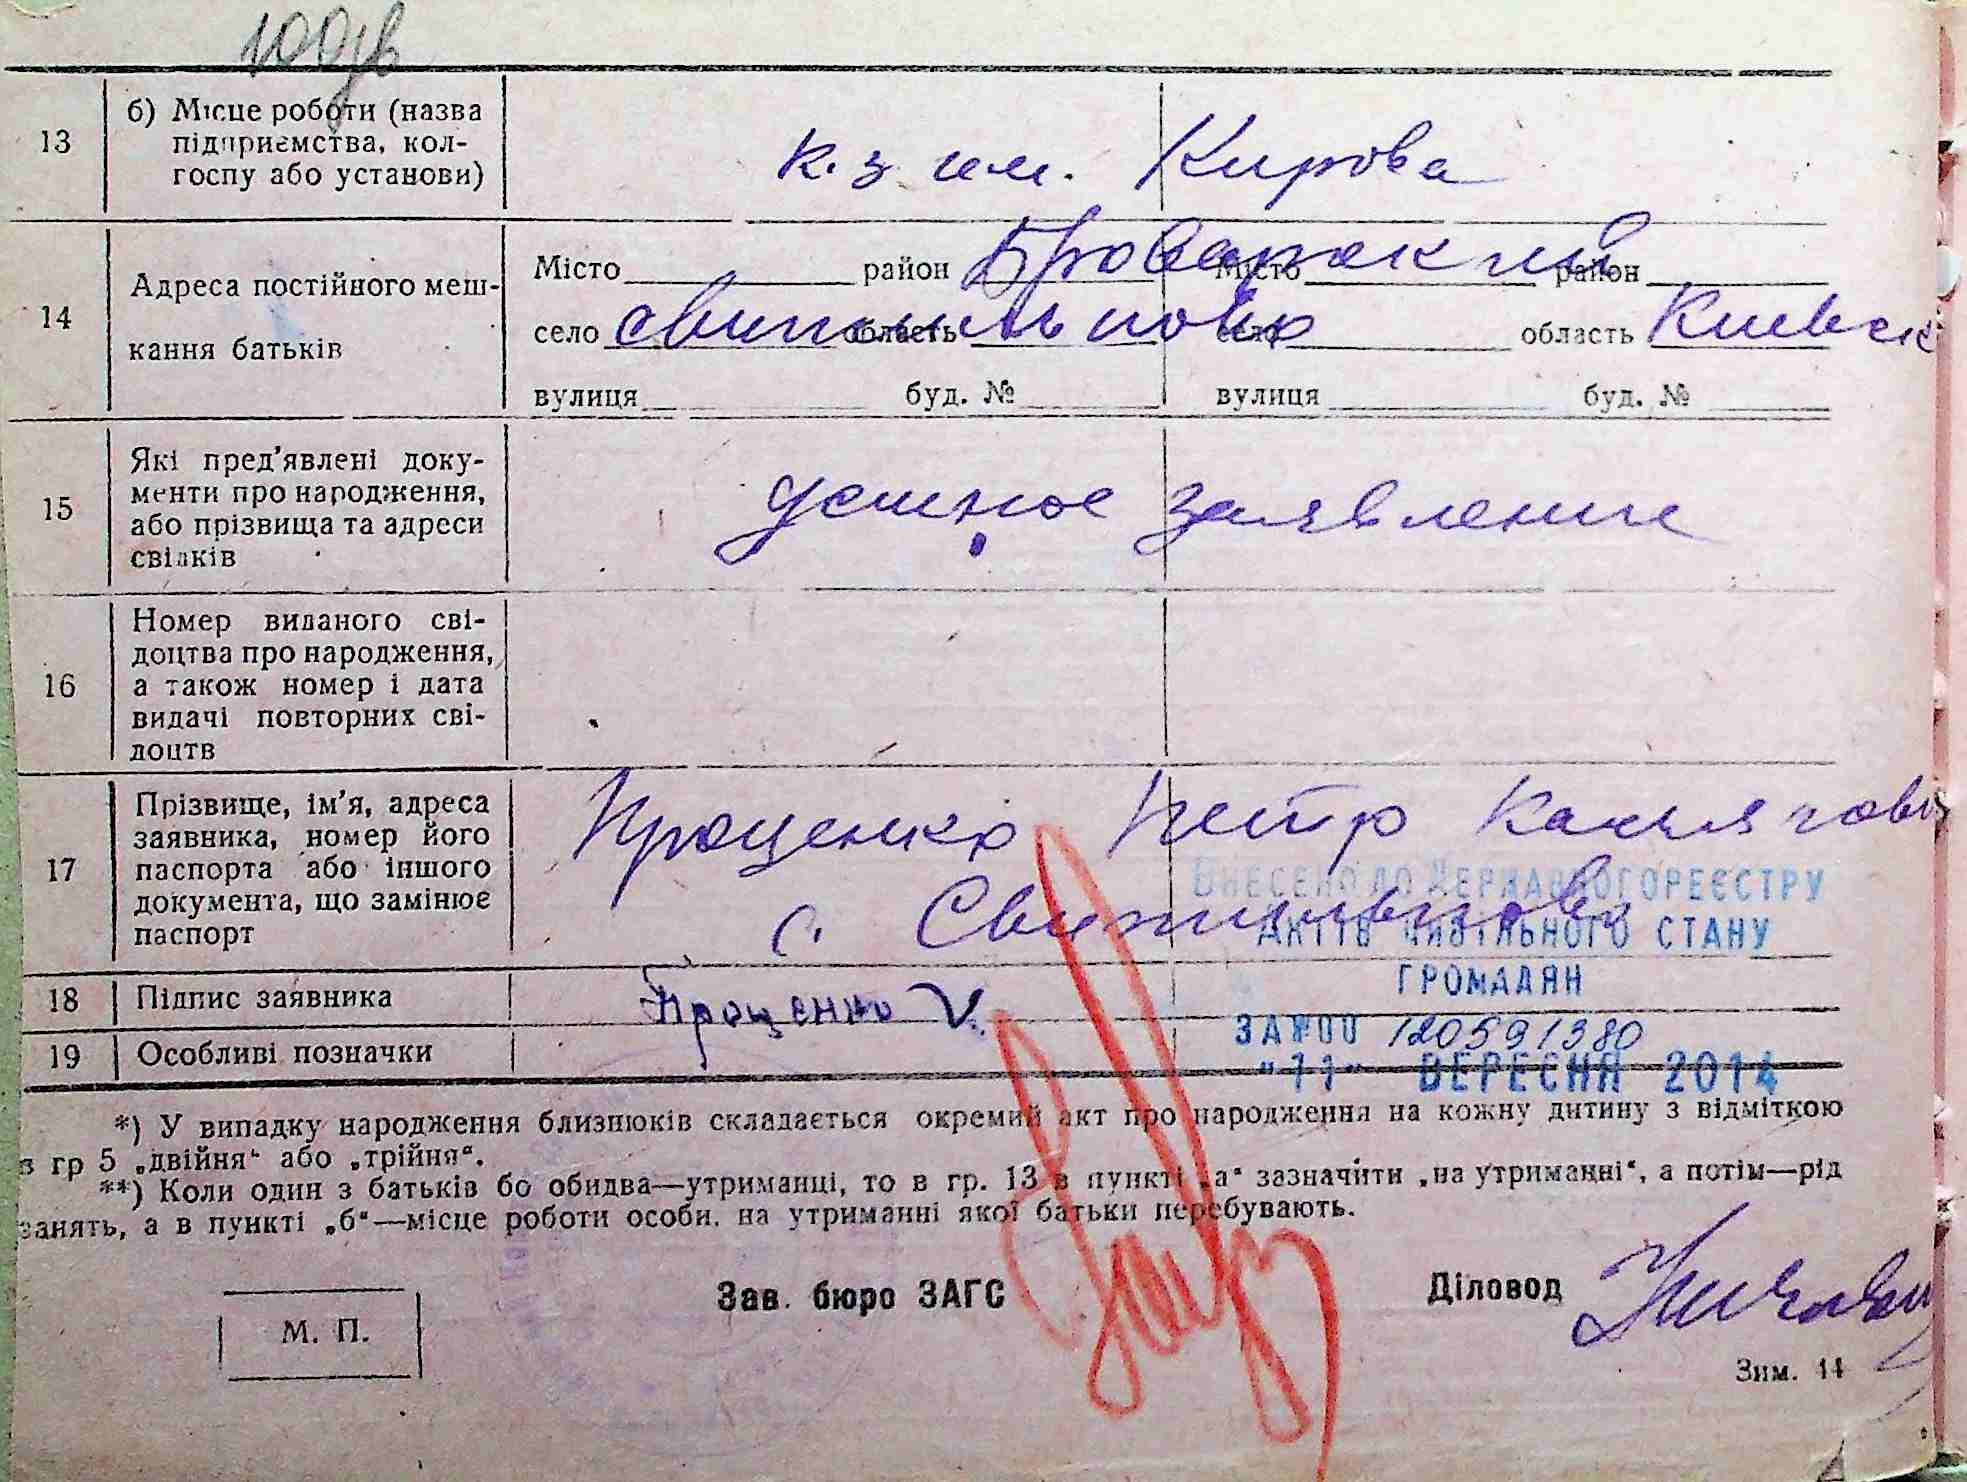 13
б) Місце роботи (назва
підприємства, кол-
госпу або установи)
к.з им. Кирова
14
Адреса постійного меш-
кання батьків
Місто район Броварский Місто район
село Свитильново область село область Киевск
вулиця буд. № вулиця буд. №
15
Які пред'явлені доку-
менти про народження,
або прізвища та адреси
свідків
устное заявление
16
Номер виданого сві-
доцтва про народження,
а також номер і дата
видачі повторних сві-
доцтв
17
Прізвище, ім'я, адреса
заявника, номер його
паспорта або іншого
документа, що замінює
паспорт
Проценко Петр
с. Свитильново
Внесено до Державного реєстру
актів цивільного стану
громадян
18
Підпис заявника
Проценко
за №00 120591380
19
Особливі позначки
"11" вересня 2014
*) У випадку народження близнюків складається окремий акт про народження на кожну дитину з відміткою
в гр 5 „двійня“ або „трійня“.
**) Коли один з батьків бо обидва—утриманці, то в гр. 13 в пункті „а“ зазначити „на утриманні“, а потім—рід
занять, а в пункті „б“—місце роботи особи, на утриманні якої батьки перебувають.
Зав. бюро ЗАГС
Діловод
М. П.
Зим. 14